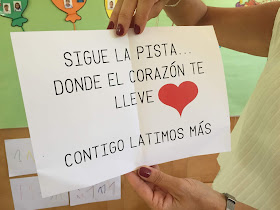 SIGUE LA PISTA...
DONDE EL CORAZÓN TE
LLEVE
CONTIGO LATIMOS MÁS